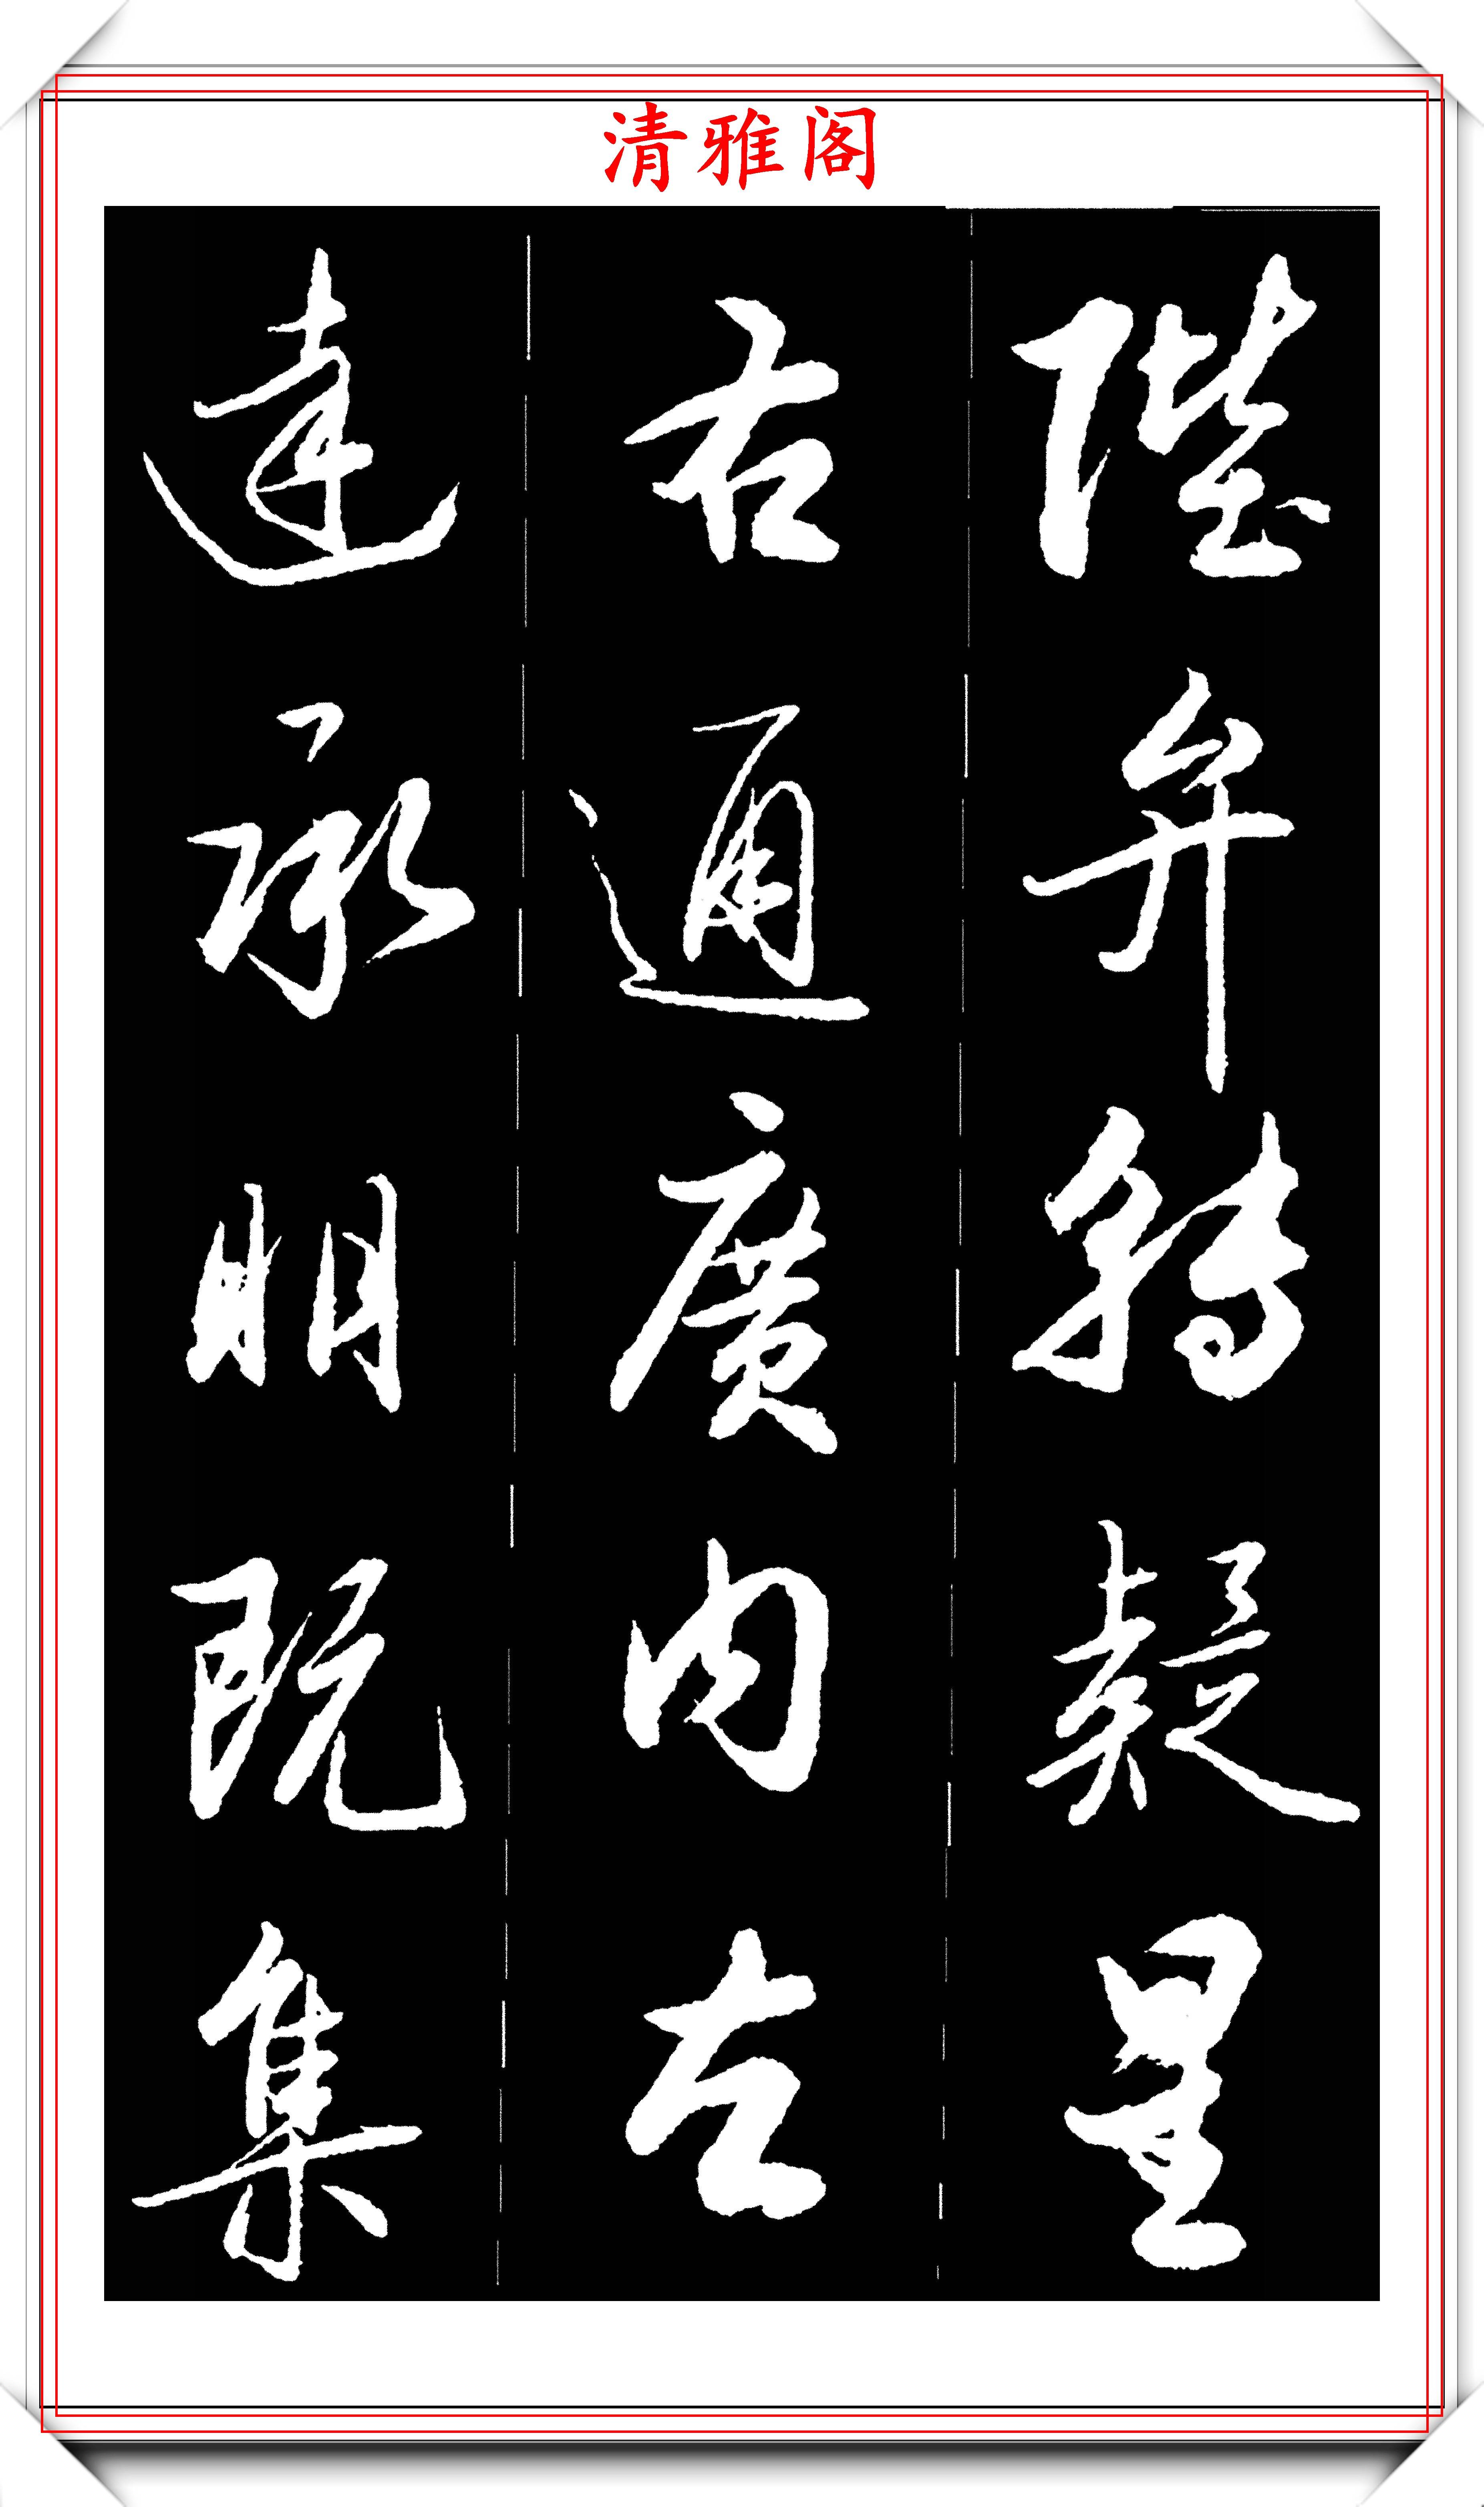 清雅阁
陛弁轉疑星
右通廣内左
達承明既集